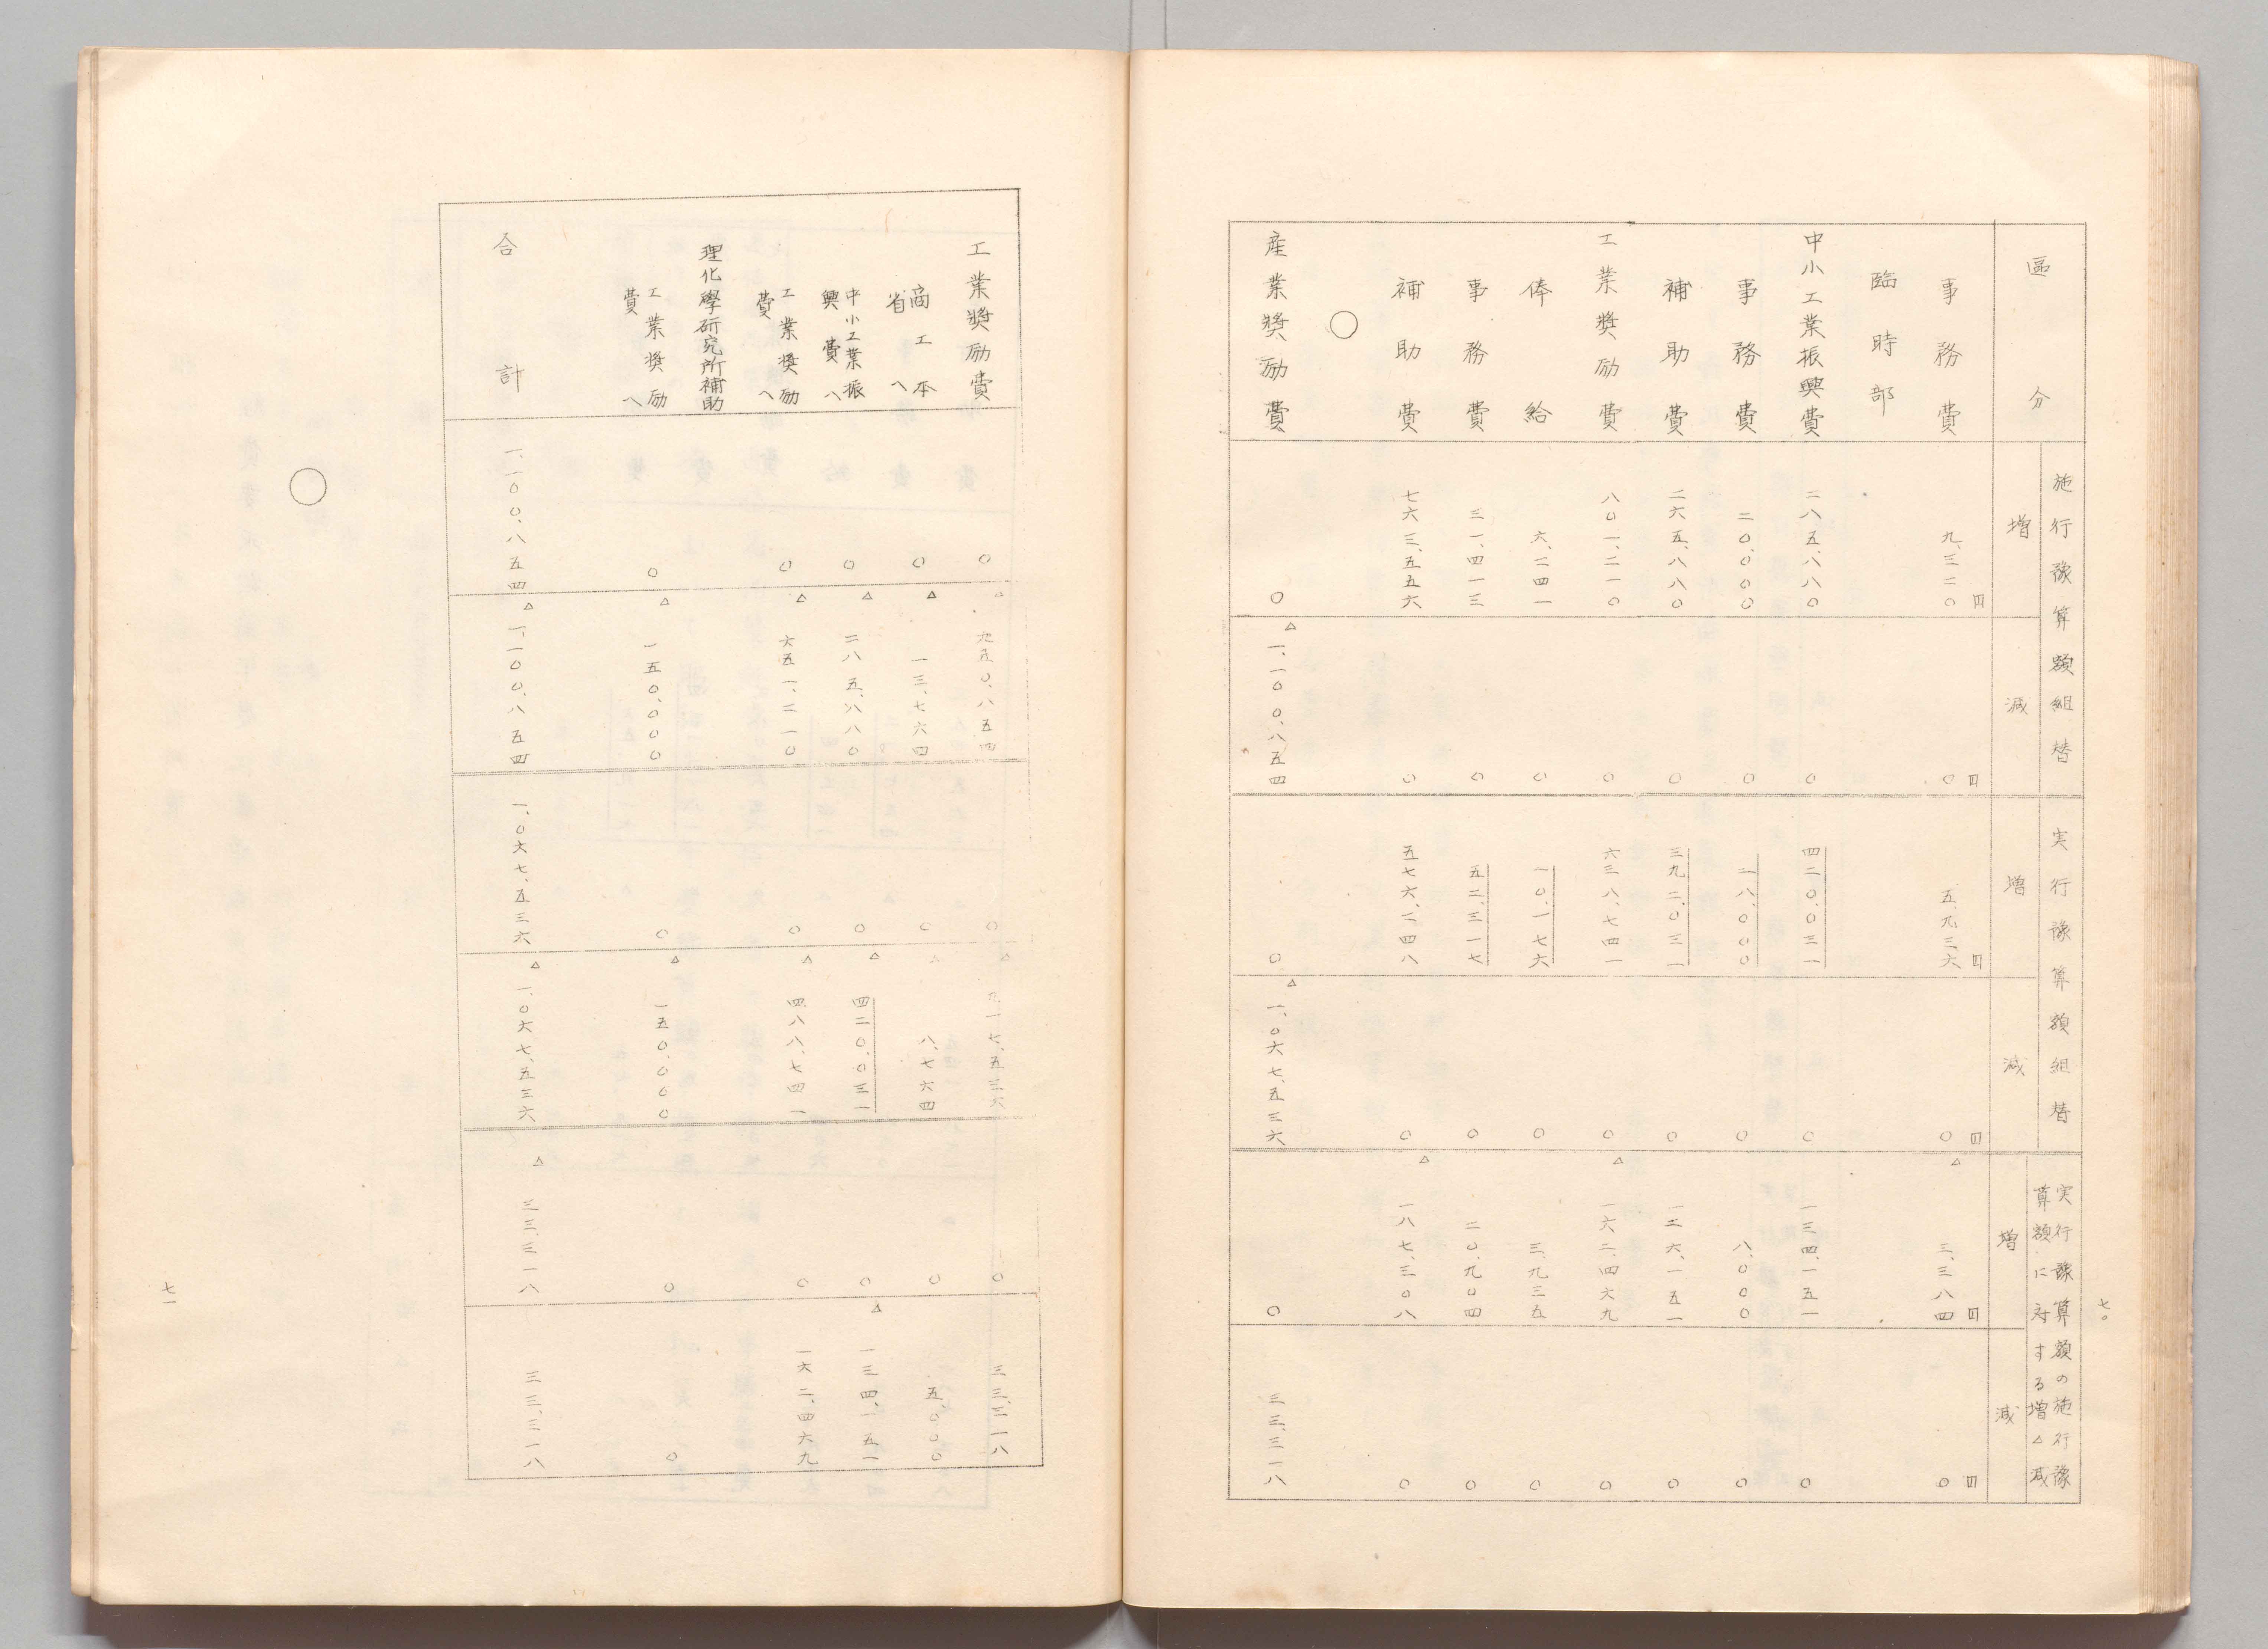 七〇
區分 施行豫算額組替 実行豫算額組替 実行豫算額の施行豫算額に対する増△減
増 減 増 減 増 減
事務費 九、三二〇円 〇円 五、九三六円 〇円 △三、三八四円 〇円
臨時部
中小工業振興費 二八五、八八〇 〇 四二〇、〇三一 〇 一三四、一五一 〇
事務費 二〇、〇〇〇 〇 二八、〇〇〇 〇 八、〇〇〇 〇
補助費 二六五、八八〇 〇 三九二、〇三一 〇 一二六、一五一 〇
工業獎励費 八〇一、二一〇 〇 六三八、七四一 〇 △一六二、四六九 〇
俸給 六、二四一 〇 一〇、一七六 〇 三、九三五 〇
事務費 三一、四一三 〇 五二、三一七 〇 二〇、九〇四 〇
補助費 七六三、五五六 〇 五七六、二四八 〇 △一八七、三〇八 〇
○
産業獎励費 〇 △一、一〇〇、八五四 〇 △一、〇六七、五三六 〇 三三、三一八
工業獎励費 〇 △九五〇、八五四 〇 △九一七、五三六 〇 三三、三一八
商工本省へ 〇 △一三、七六四 〇 △八、七六四 〇 五、〇〇〇
中小工業振興費へ 〇 △二八五、八八〇 〇 △四二〇、〇三一 〇 △一三四、一五一
工業獎励費へ 〇 △六五一、二一〇 〇 △四八八、七四一 〇 一六二、四六九
理化學研究所補助
工業獎励費へ 〇 △一五〇、〇〇〇 〇 △一五〇、〇〇〇 〇 〇
合計 一、一〇〇、八五四 △一、一〇〇、八五四 一、〇六七、五三六 △一、〇六七、五三六 △三三、三一八 三三、三一八
○
七一